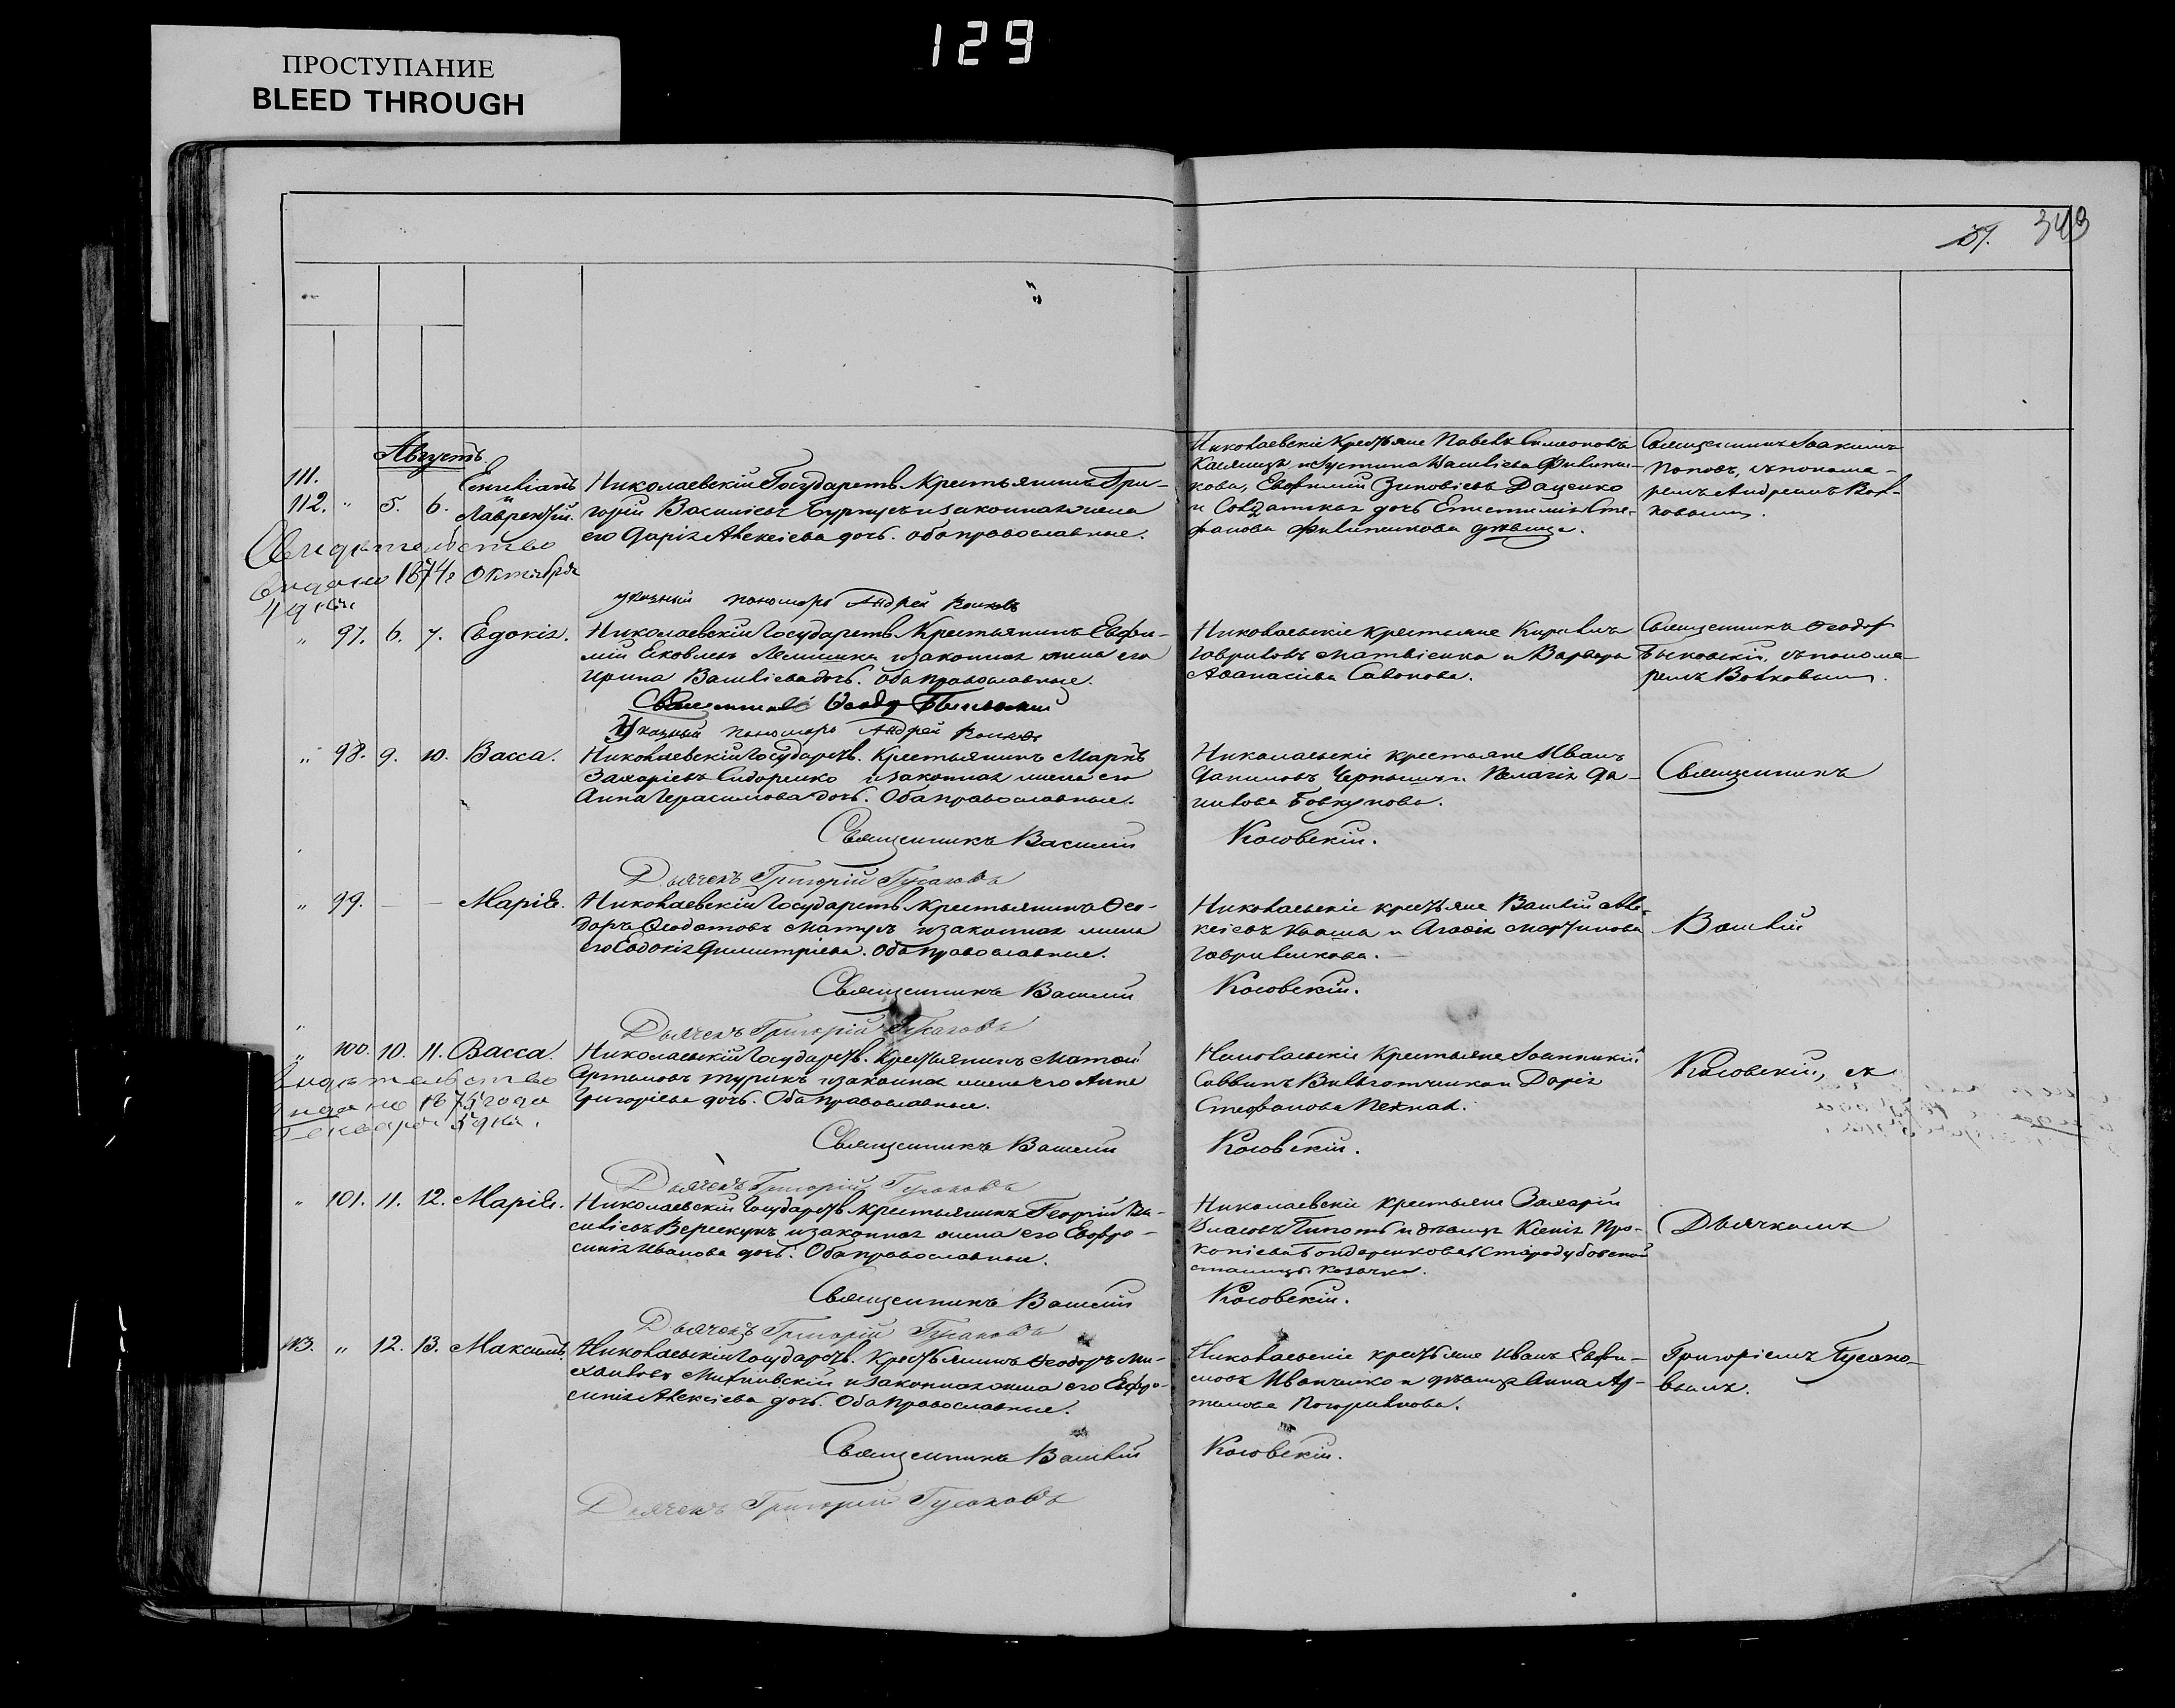 129
ПРОСТУПАНИЕ
BLEED THROUGH
59. 343
Августъ.
111.
112. " 5. 6. Емиліанъ и Лаврентій.
Николаевскій Государств. Крестьянинъ Гри-
горій Василіевъ Бурнусъ и законная жена
его Дарія Алексіева дочь. оба православные.
Николаевскіе Крестьяне Павелъ Симеоновъ
Каслицъ и Іустина Василіева Филипи-
кова, Евфимій Зиновіевъ Даценко
и Солдатская дочь Епистимія Сте-
фанова Филипикова дѣвица.
Священникъ Іоакимъ
Поповъ, съ понома-
ремъ Андреемъ Вол-
ковымъ.
Свидѣтельство
видано 1874 г Октября
4 дня
указный пономарь Андрей Волковъ
" 97. 6. 7. Евдокія.
Николаевскій Государств. Крестьянинъ Евфи-
мій Яковлевъ Лемишка и законная жена его
Ирина Василіева дочь. Оба Православные.
Николаевскіе крестьяне Кириллъ
Гавриловъ Матвіенко и Варвара
Аѳанасіева Савонова.
Священникъ Ѳеодоръ
Бѣлковскій, съ понома-
ремъ Волковымъ.
Священникъ Ѳеодоръ
Указный пономарь Андрей Волковъ
" 98. 9. 10. Васса.
Николаевскій Государств. Крестьянинъ Маркъ
Захаріевъ Сидоренко и законная жена его
Анна Герасимова дочь. Оба православные.
Николаевскіе крестьяне Иванъ
Даниловъ Чернышъ и Пелагія Да-
нилова Бовкунова.
Священникъ
Священникъ Василій Косовскій.
Дьячекъ Григорій Гусаковъ
" 99. — — Марія.
Николаевскій Государств. Крестьянинъ Ѳео-
доръ Ѳеодотовъ Мацукъ и законная жена
его Евдокія Димитріева. Оба православные.
Николаевскіе крестьяне Василій Але-
ксіевъ Кваша и Агафія Мартинова
Гавриленкова.
Василій
Священникъ Василій Косовскій.
Дьячекъ Григорій Гусаковъ
" 100. 10. 11. Васса.
Николаевскій Государств. Крестьянинъ Матѳей
Артемовъ Турикъ и законная жена его Анна
Григоріева дочь. Оба Православные.
Николаевскіе Крестьяне Іоанникій
Саввинъ Вильготченко и Дарія
Стефанова Пехная.
Косовскій, съ
Свидѣтельство
видано 1875 года
Генваря 5 дня.
Священникъ Василій Косовскій.
Дьячекъ Григорій Гусаковъ
" 101. 11. 12. Марія.
Николаевскій Государств. крестьянинъ Георгій Ва-
силіевъ Верескунъ и законная жена его Евфро-
синія Иванова дочь. Оба православные.
Николаевскіе крестьяне Захарій
Власовъ Типоть и дѣвица Ксенія Про-
копіева Бондаренкова Стародубовской
станицы Козачка.
Дьячкомъ
Священникъ Василій Косовскій.
Дьячекъ Григорій Гусаковъ
113. " 12. 13. Максимъ.
Николаевскій Государств. Крестьянинъ Ѳеодоръ Ми-
хаиловъ Михновскій и законная жена его Евфро-
синія Алексіева дочь. Оба православные.
Николаевскіе крестьяне Иванъ Евфи-
мовъ Иванченко и дѣвица Анна Ар-
темова Погорѣлкова.
Григоріемъ Гусако-
вымъ.
Священникъ Василій Косовскій.
Дьячекъ Григорій Гусаковъ